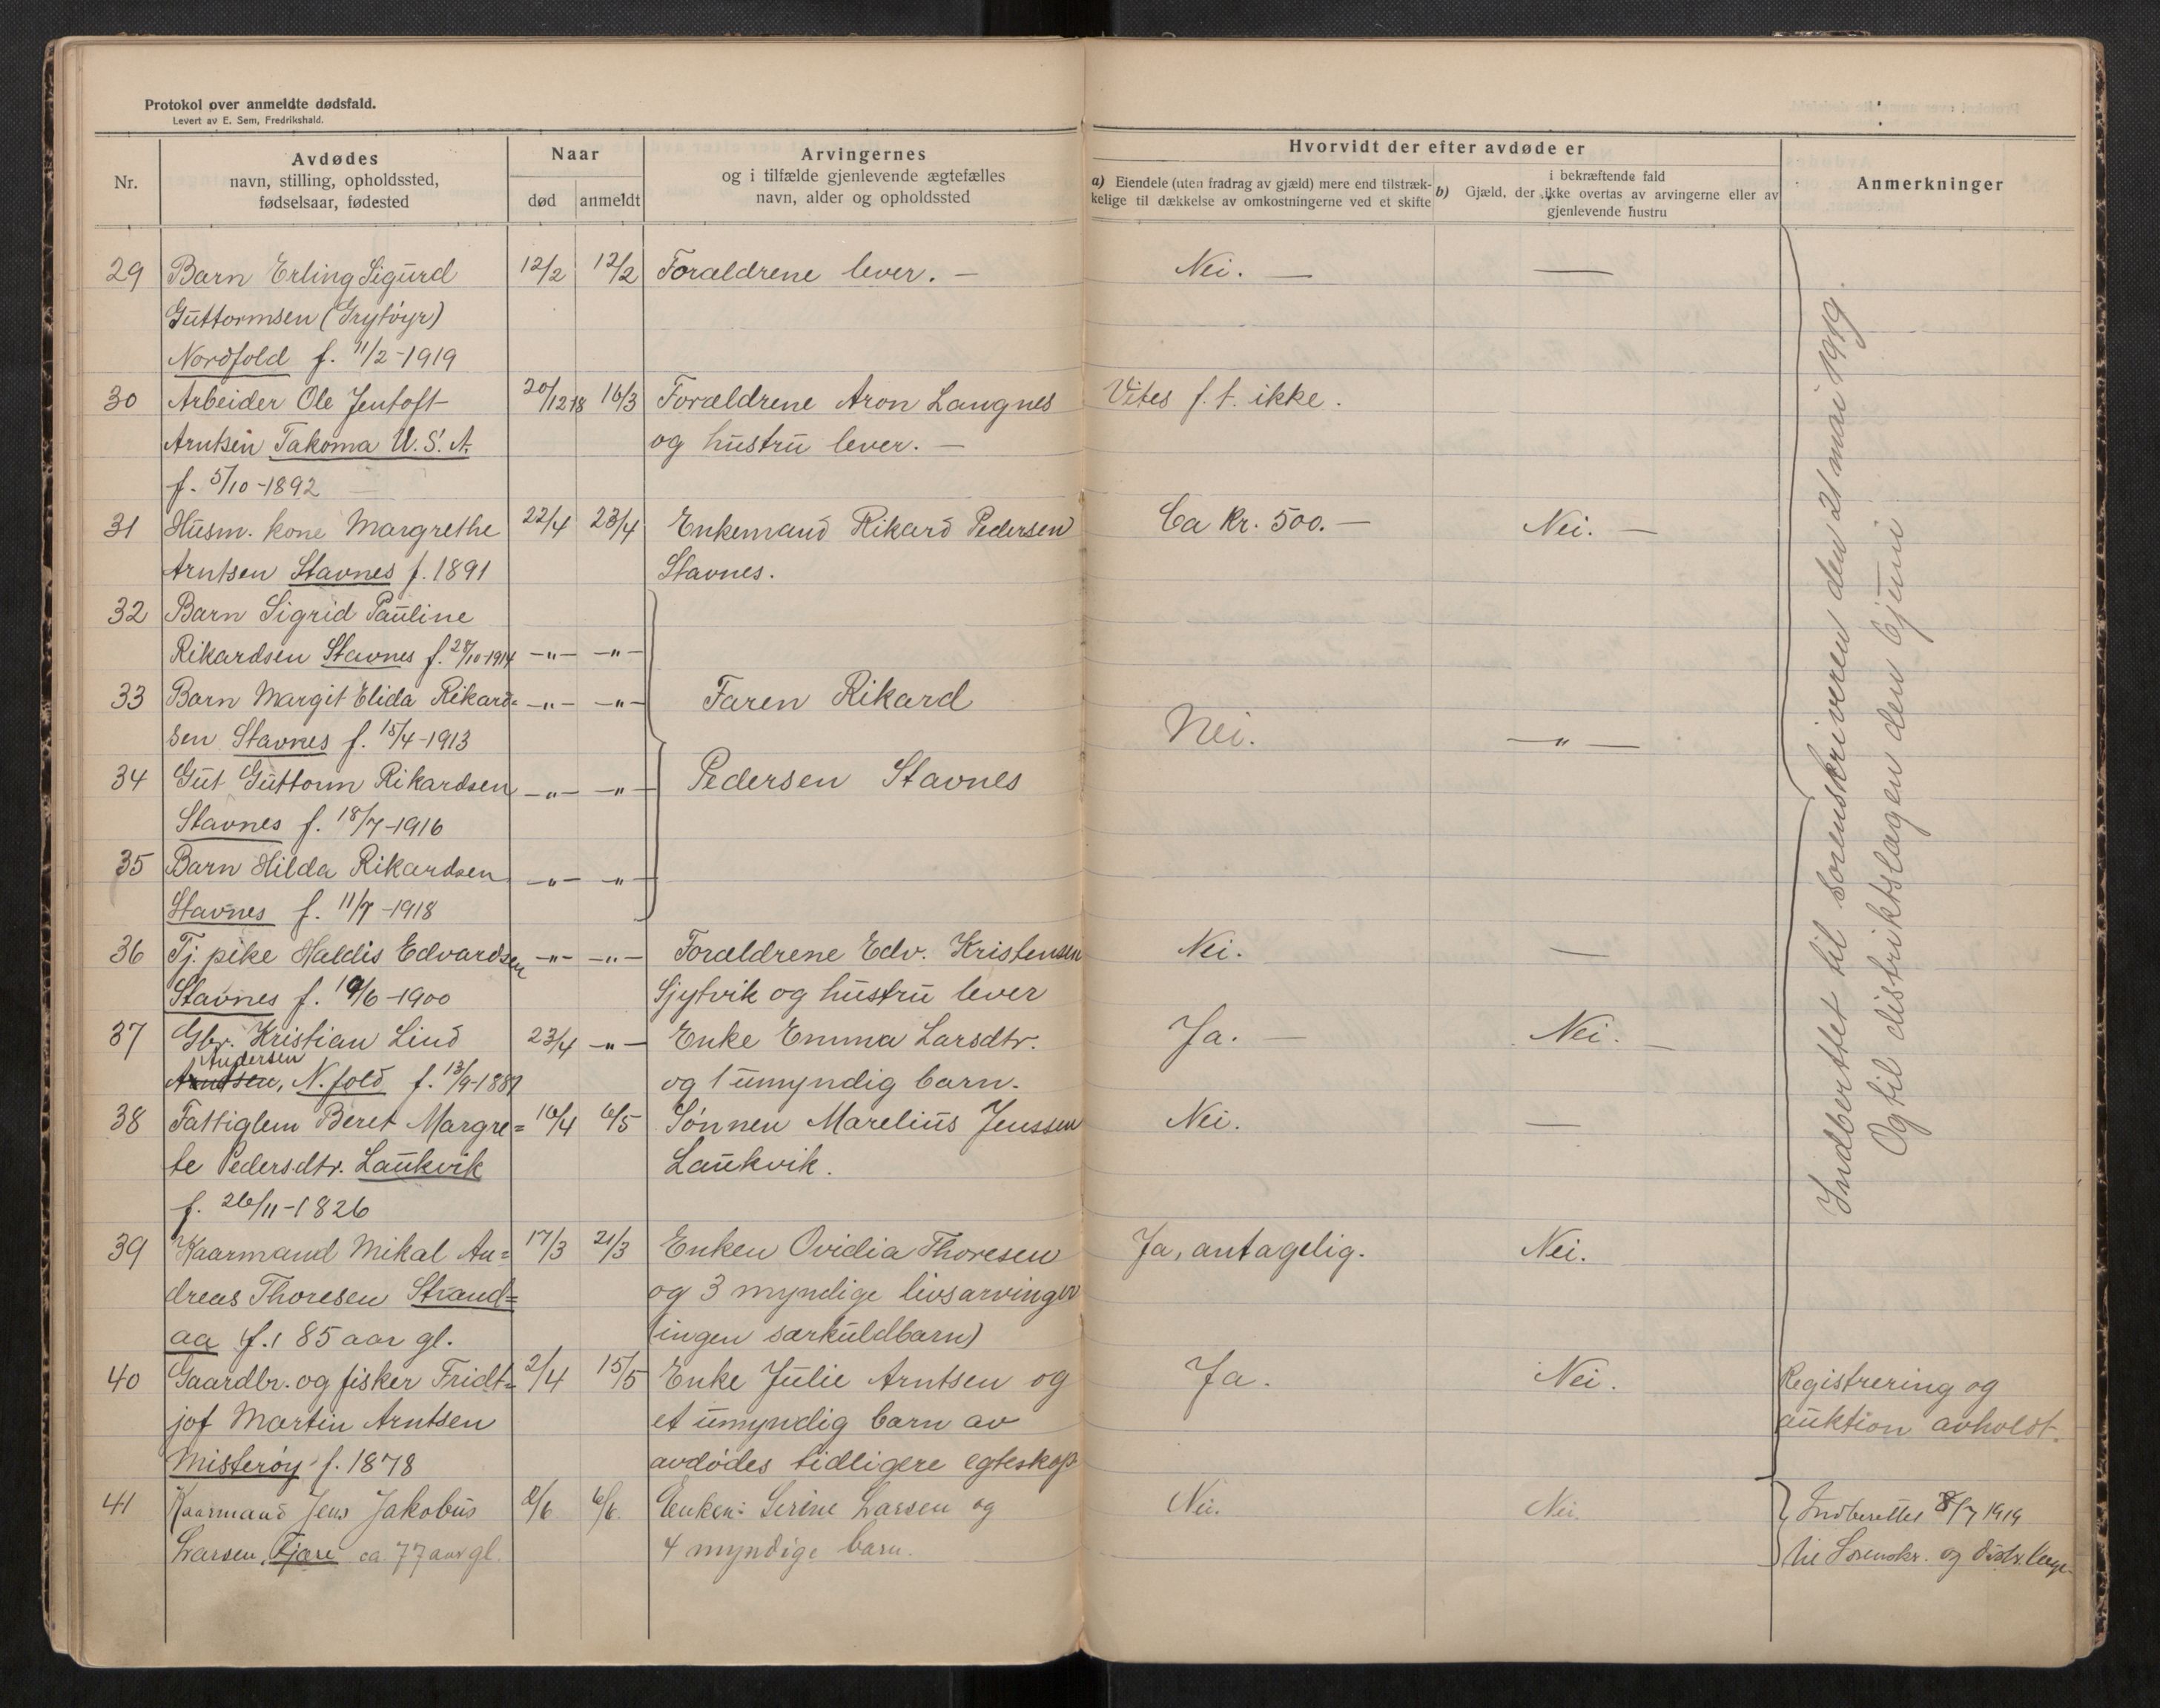 Protokol over anmeldte dødsfald.
Levert av E. Sem, Fredrikshald.
Nr.
Avdødes
navn, stilling, opholdssted,
fødselsaar, fødested
Naar
død
anmeldt
Arvingernes
og i tilfælde gjenlevende ægtefælles
navn, alder og opholdssted
Hvorvidt der efter avdøde er
a) Eiendele (uten fradrag av gjæld) mere end tilstræk-
kelige til dækkelse av omkostningerne ved et skifte
i bekræftende fald
b) Gjæld, der ikke overtas av arvingerne eller av
gjenlevende hustru
Anmerkninger
29 Barn Erling Sigurd 12/2 12/2 Forældrene lever. — Nei. — —
Guttormsen (Grytøyr)
Nordfold f. 11/2-1919
30 Arbeider Ole Jentoft 20/12 18 16/3 Forældrene Aron Langnes Vites f. t. ikke.
Arntsen Takoma U.S.A. og hustru lever. —
f. 5/10-1892
31 Husm. kone Margrethe 22/4 23/4 Enkemand Rikard Pedersen Ca Kr. 500. — Nei. —
Arntsen Stavnes f. 1891 Stavnes.
32 Barn Sigrid Pauline
Rikardsen Stavnes f. 28/10-1914 —"— —"—
33 Barn Margit Elida Rikard= —"— —"— Faren Rikard Nei. —"—
sen Stavnes f. 15/4-1913
34 Gut Guttorm Rikardsen —"— —"— Pedersen Stavnes
Stavnes f. 18/7-1916
35 Barn Hilda Rikardsen —"— —"—
Stavnes f. 11/7-1918
36 Tj. pike Haldis Edvardsen —"— —"— Forældrene Edv. Kristensen Nei. —
Stavnes f. 19/6-1900 Sjytvik og hustru lever
37 Gbr. Kristian Lind 23/4 —"— Enke Emma Larsdtr. Ja. — Nei. —
Andersen
Arntsen, N.fold f. 13/9-1889 og 1 umyndig barn.
38 Fattiglem Beret Margre= 16/4 6/5 Sønnen Marelius Jenssen Nei. —
te Pedersdtr. Laukvik Laukvik.
f. 26/11-1826
39 Kaarmand Mikal An= 17/3 21/3 Enken Ovidia Thoresen Ja, antagelig. Nei.
dreas Thoresen Strand= og 3 myndige livsarvinger
aa f. 85 aar gl. (ingen særkuldbarn)
40 Gaardbr. og fisker Fridt= 2/4 15/5 Enke Julie Arntsen og Ja. Nei. Registrering og
jof Martin Arntsen et umyndig barn av auktion avholdt.
Misterøy f. 1878 avdødes tidligere egteskap
41 Kaarmand Jens Jakobus 2/6 6/6. Enken: Serine Larsen og Nei. Nei. Indberettet 8/7 1919
Larsen, Fjære ca. 77 aar gl. 4 myndige barn. til Sorenskr. og distr.læge.
Indberettet til sorenskriveren den 21 mai 1919.
Og til distriktslagen den 6 juni